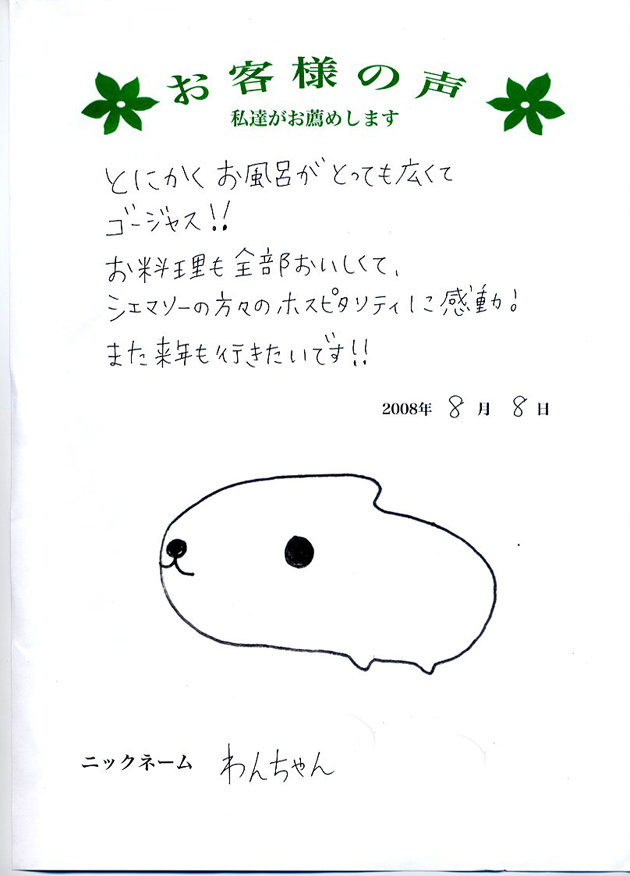 お客様の声
私達がお薦めします
とにかくお風呂がとっても広くて
ゴージャス!!
お料理も全部おいしくて、
シェマソーの方々のホスピタリティに感動!
また来年も行きたいです!!
2008年 8月 8日
ニックネーム わんちゃん